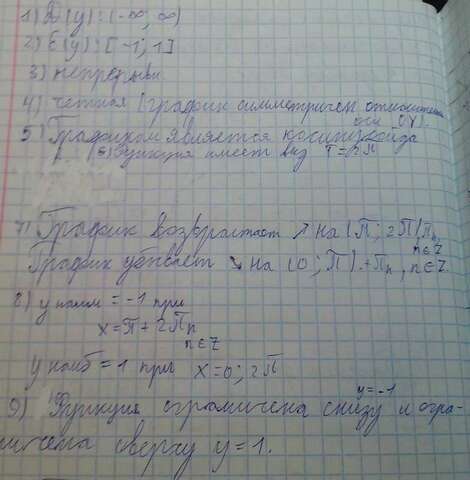 1) D(y): (-∞; ∞)
2) E(y): [-1; 1]
3) непрерывн
4) четная (график симметричен относительно
оси OY).
5) Графиком является косинусоида
6) Функция имеет вид T=2π
7) График возврастает ↗ на (π; 2π)πn
n∈Z
График убывает ↘ на (0; π).+πn, n∈Z.
8) y наим = -1 при
x=π+2πn
n∈Z
y наиб = 1 при x=0; 2π
y=-1
9) Функция ограничена снизу и огра-
ничена сверху y=1.